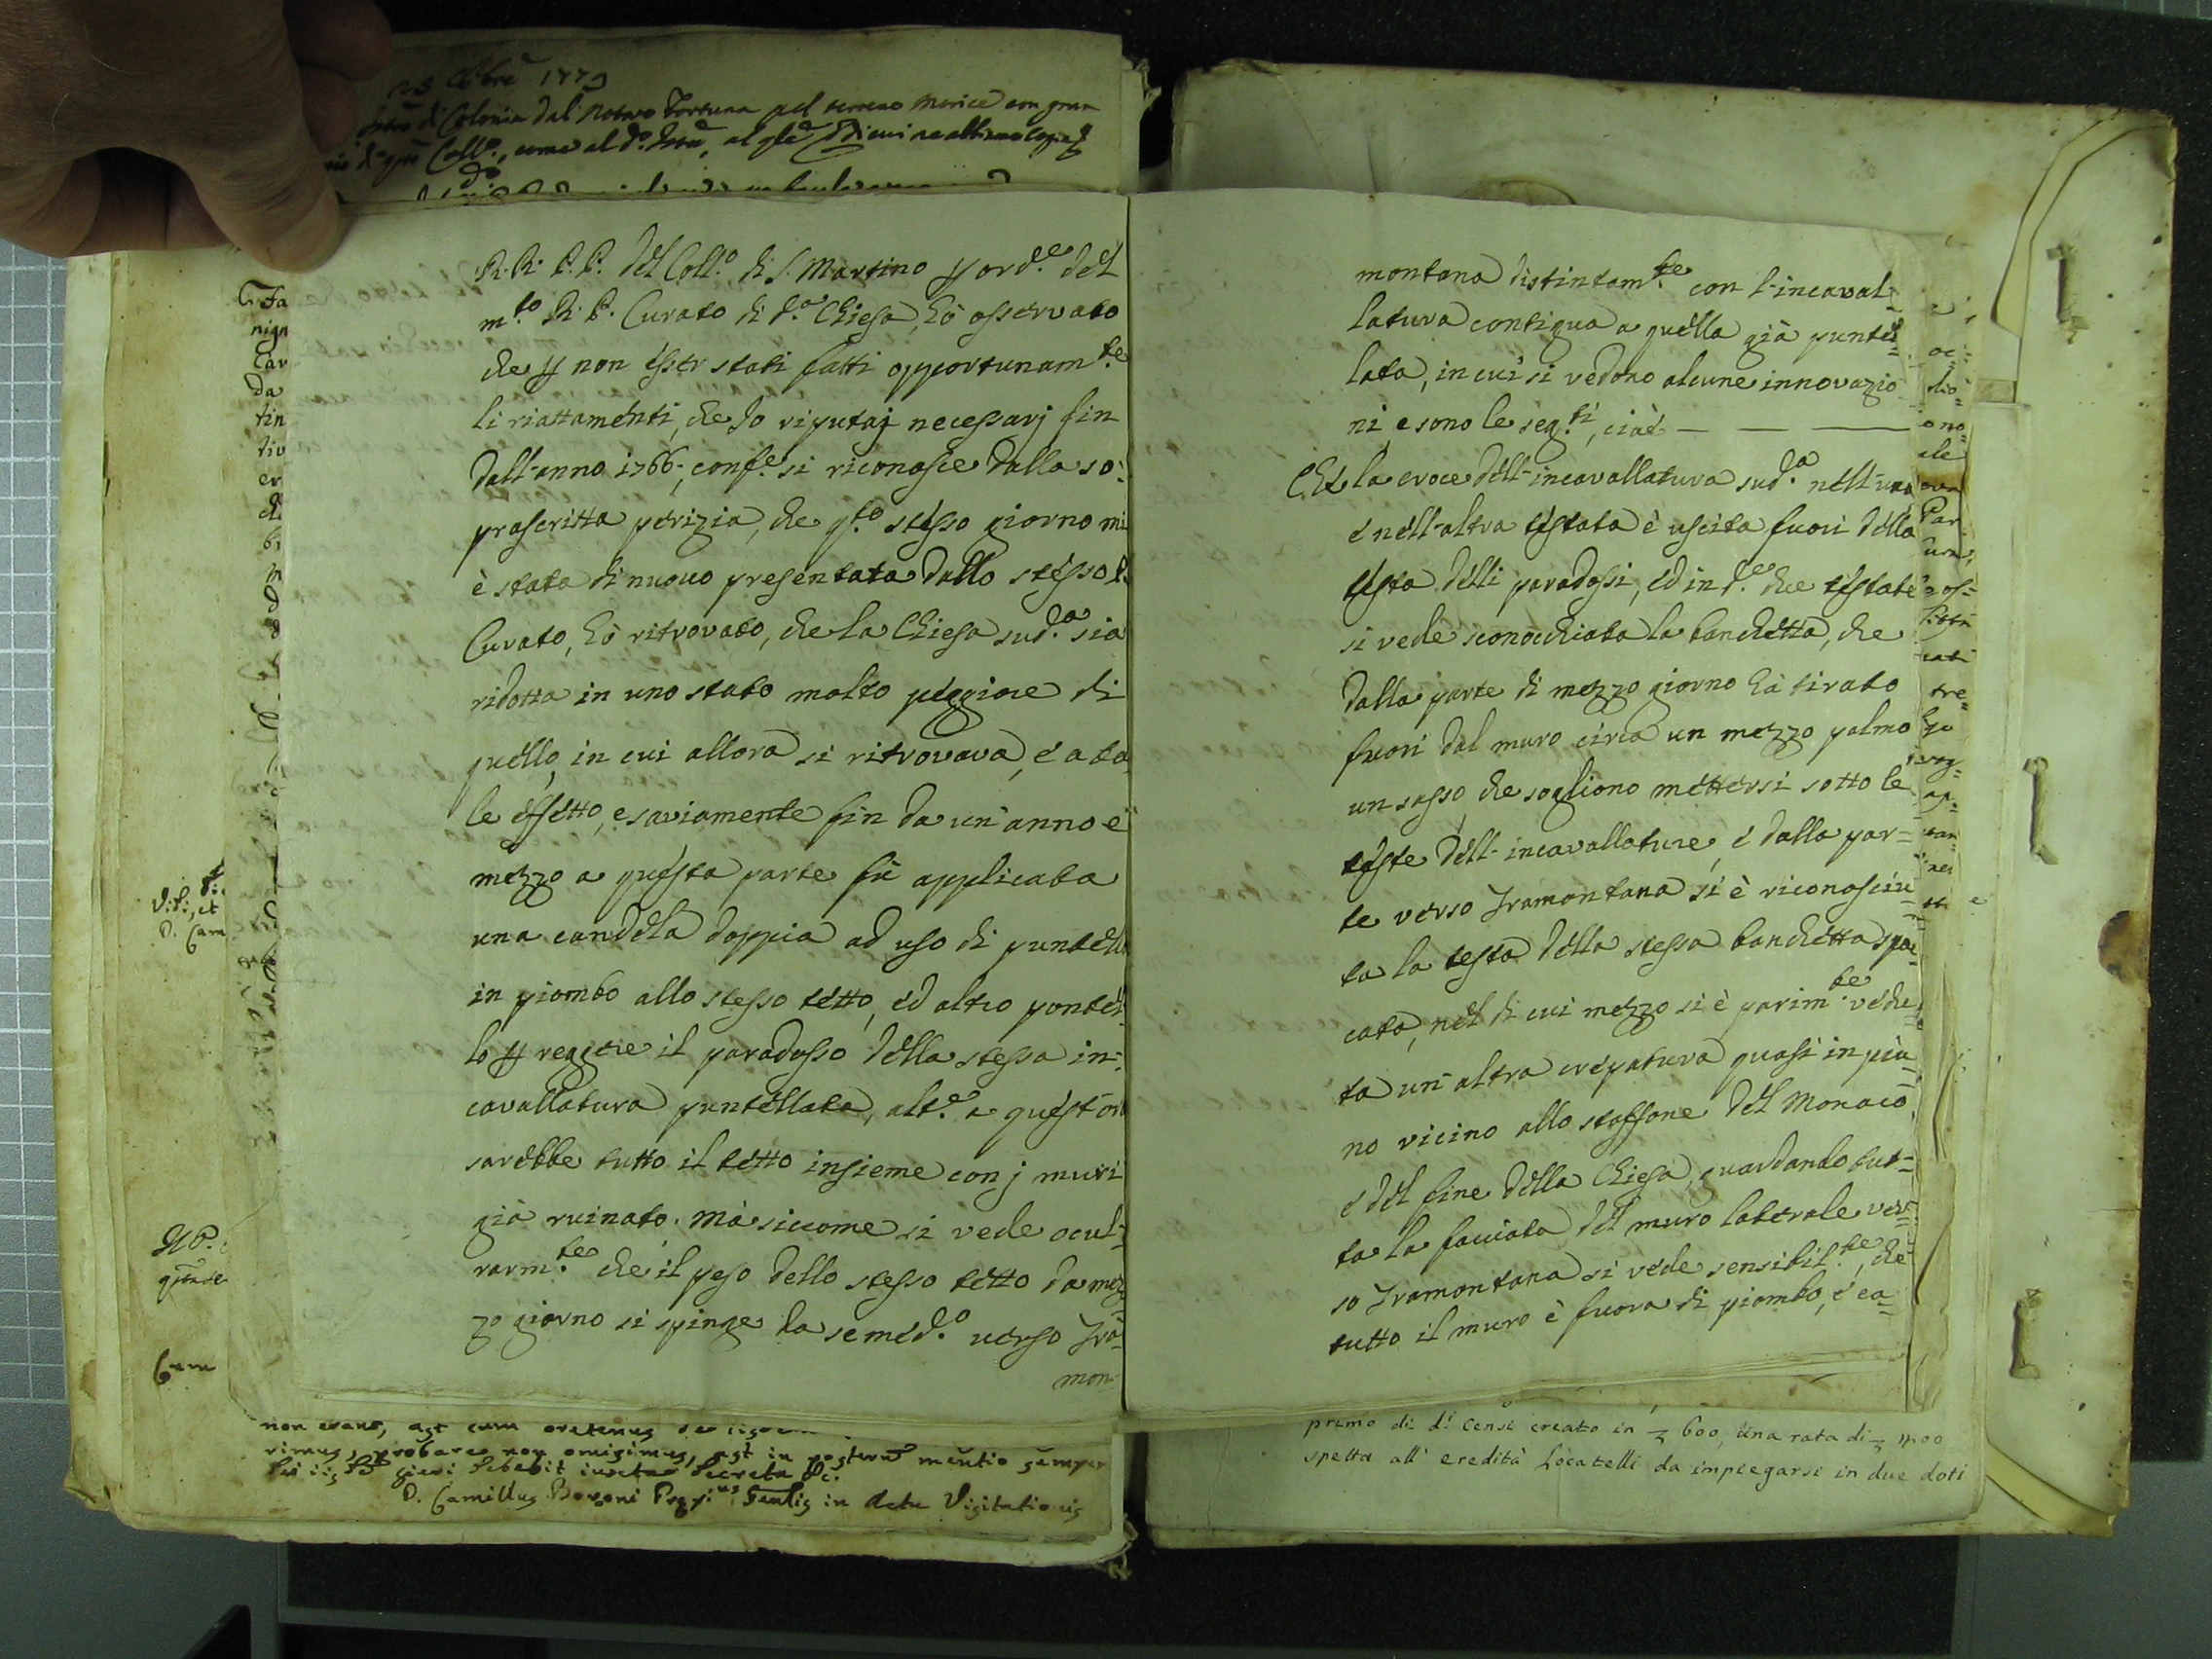 25 Xbre 1779
di Colonia dal Notaro Fortuna pel terreno Morice con gran
Coll.o, come al d.o
R.R. P.P. del Coll.o di S. Martino p ord.e del
m.to R. P. Curato di d.a Chiesa, hò osservato
che p non esser stati fatti opportunam.te
li riattamenti, che Io riputaj necessarj fin
dall'anno 1766, conf.e si riconosce dalla so:
prascritta perizia, che q.to stesso giorno mi
è stata di nuovo presentata dallo stesso P.
Curato, hò ritrovato, che la Chiesa sud.a sia
ridotta in uno stato molto peggiore di
quello, in cui allora si ritrovava, e a ta
le effetto, e saviamente fin da un'anno e
mezzo a questa parte fù applicata
una candela doppia ad uso di puntello
in piombo allo stesso tetto, ed altro pontel
lo p reggere il paradosso della stessa in:
cavallatura puntellata, alt.e a quest'ora
sarebbe tutto il tetto insieme con j muri
già ruinato. Mà siccome si vede ocul:
rarm.te che il peso dello stesso tetto da mez
zo giorno si spinge da semed.o verso Tra
mon
montana distintam.te con l'incaval:
latura contigua a quella già puntel:
lata, in cui si vedono alcune innovazio
ni, e sono le seg.ti, cioè
Che la croce dell'incavallatura sud.a nell'una
e nell'altra testata è uscita fuori della
testa delli paradossi, ed in d.e due testate
si vede sconocchiata la banchetta, che
dalla parte di mezzo giorno hà tirato
fuori dal muro circa un mezzo palmo
un sasso, che sogliono mettersi sotto le
teste dell'incavallature, e dalla par=
te verso Tramontana si è riconosciu
ta la testa della stessa banchetta spac
cata, nel di cui mezzo si è parim.te vedu
ta un'altra crepatura quasi in pia
no vicino allo staffone del Monaco
e del fine della Chiesa, guardando tut=
ta la facciata del muro laterale ver
so Tramontana si vede sensibil.te, che
tutto il muro è fuora di piombo, e ca=
non erant, ast cum oretenus
rimus, probare non omisimus, ast in posterum mentio semper
fieri debebit iuxta Decreta &c.
D. Camillus Bovoni Prep.us Gnlis in Actu Visitationis
primo di d.i Censi creato in 600, una rata di
spetta all' eredità Locatelli da impiegarsi in due doti